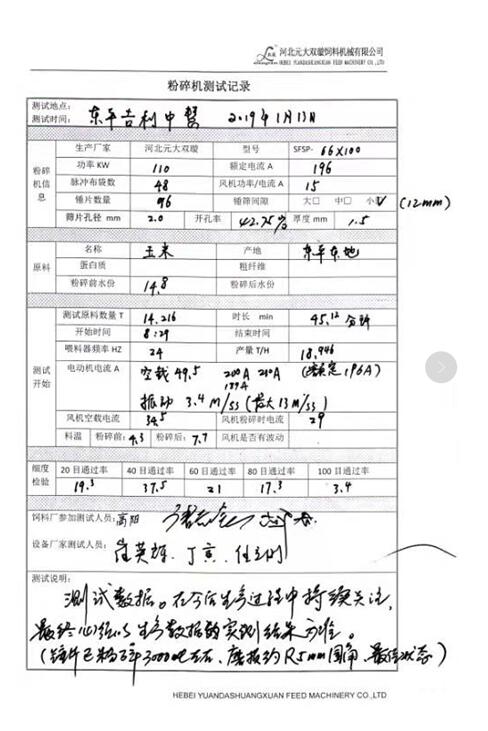 河北元大双璇饲料机械有限公司
HEBEI YUANDASHUANGXUAN FEED MACHINERY CO.,LTD
粉碎机测试记录
测试地点: 东平吉利中慧
测试时间: 2019年1月13日
粉碎机信息
生产厂家 河北元大双璇 型号 SFSP- 66X100
功率 KW 110 额定电流 A 196
脉冲布袋数 48 风机功率/电流 A 15
锤片数量 96 锤筛间隙 大□ 中□ 小☑ (12mm)
筛片孔径 mm 2.0 开孔率 42.75% 厚度 mm 1.5
原料
名称 玉米 产地 东平本地
蛋白质 粗纤维
粉碎前水份 14.8 粉碎后水份
测试开始
测试原料数量 T 14.216 时长 min 45.12 分钟
开始时间 8:29 结束时间
喂料器频率 HZ 24 产量 T/H 18.946
电动机电流 A 空载 49.5 200A 210A (额定196A)
振动 3.4 m/ss (最大 13 m/ss)
风机空载电流 34.5 风机粉碎时电流 29
料温 粉碎前: 4.3 粉碎后: 7.7 风机是否有波动
细度检验
20 目通过率 40 目通过率 60 目通过率 80 目通过率 100 目通过率
19.3 37.5 21 17.3 3.4
饲料厂参加测试人员: 高阳
设备厂家测试人员: 崔英辉、丁亮、
测试说明:
测试数据。在今后生产过程中持续关注,
最终必须以生产数据的实现结果为准。
(锤片已粉碎3000吨左右、磨损约R5mm圆角、最佳状态)
HEBEI YUANDASHUANGXUAN FEED MACHINERY CO.,LTD